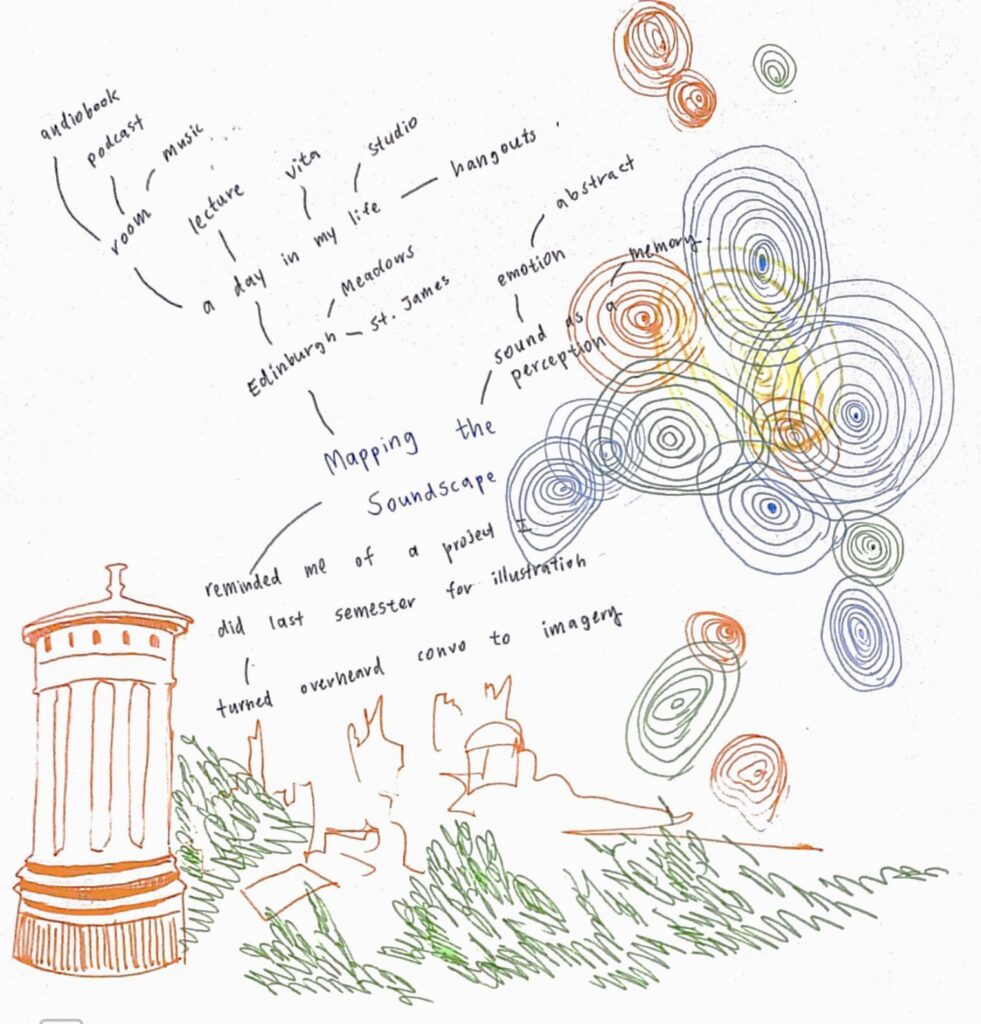 audiobook
podcast
music
room
lecture
vita
studio
hangouts
a day in my life
Meadows
St. James
Edinburgh
abstract
emotion
memory
sound as a
perception
Mapping the
Soundscape
reminded me of a project I
did last semester for illustration
turned overheard convo to imagery